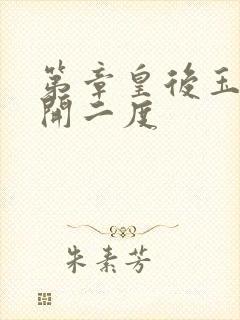 第章皇後玉
開二度
朱素芳